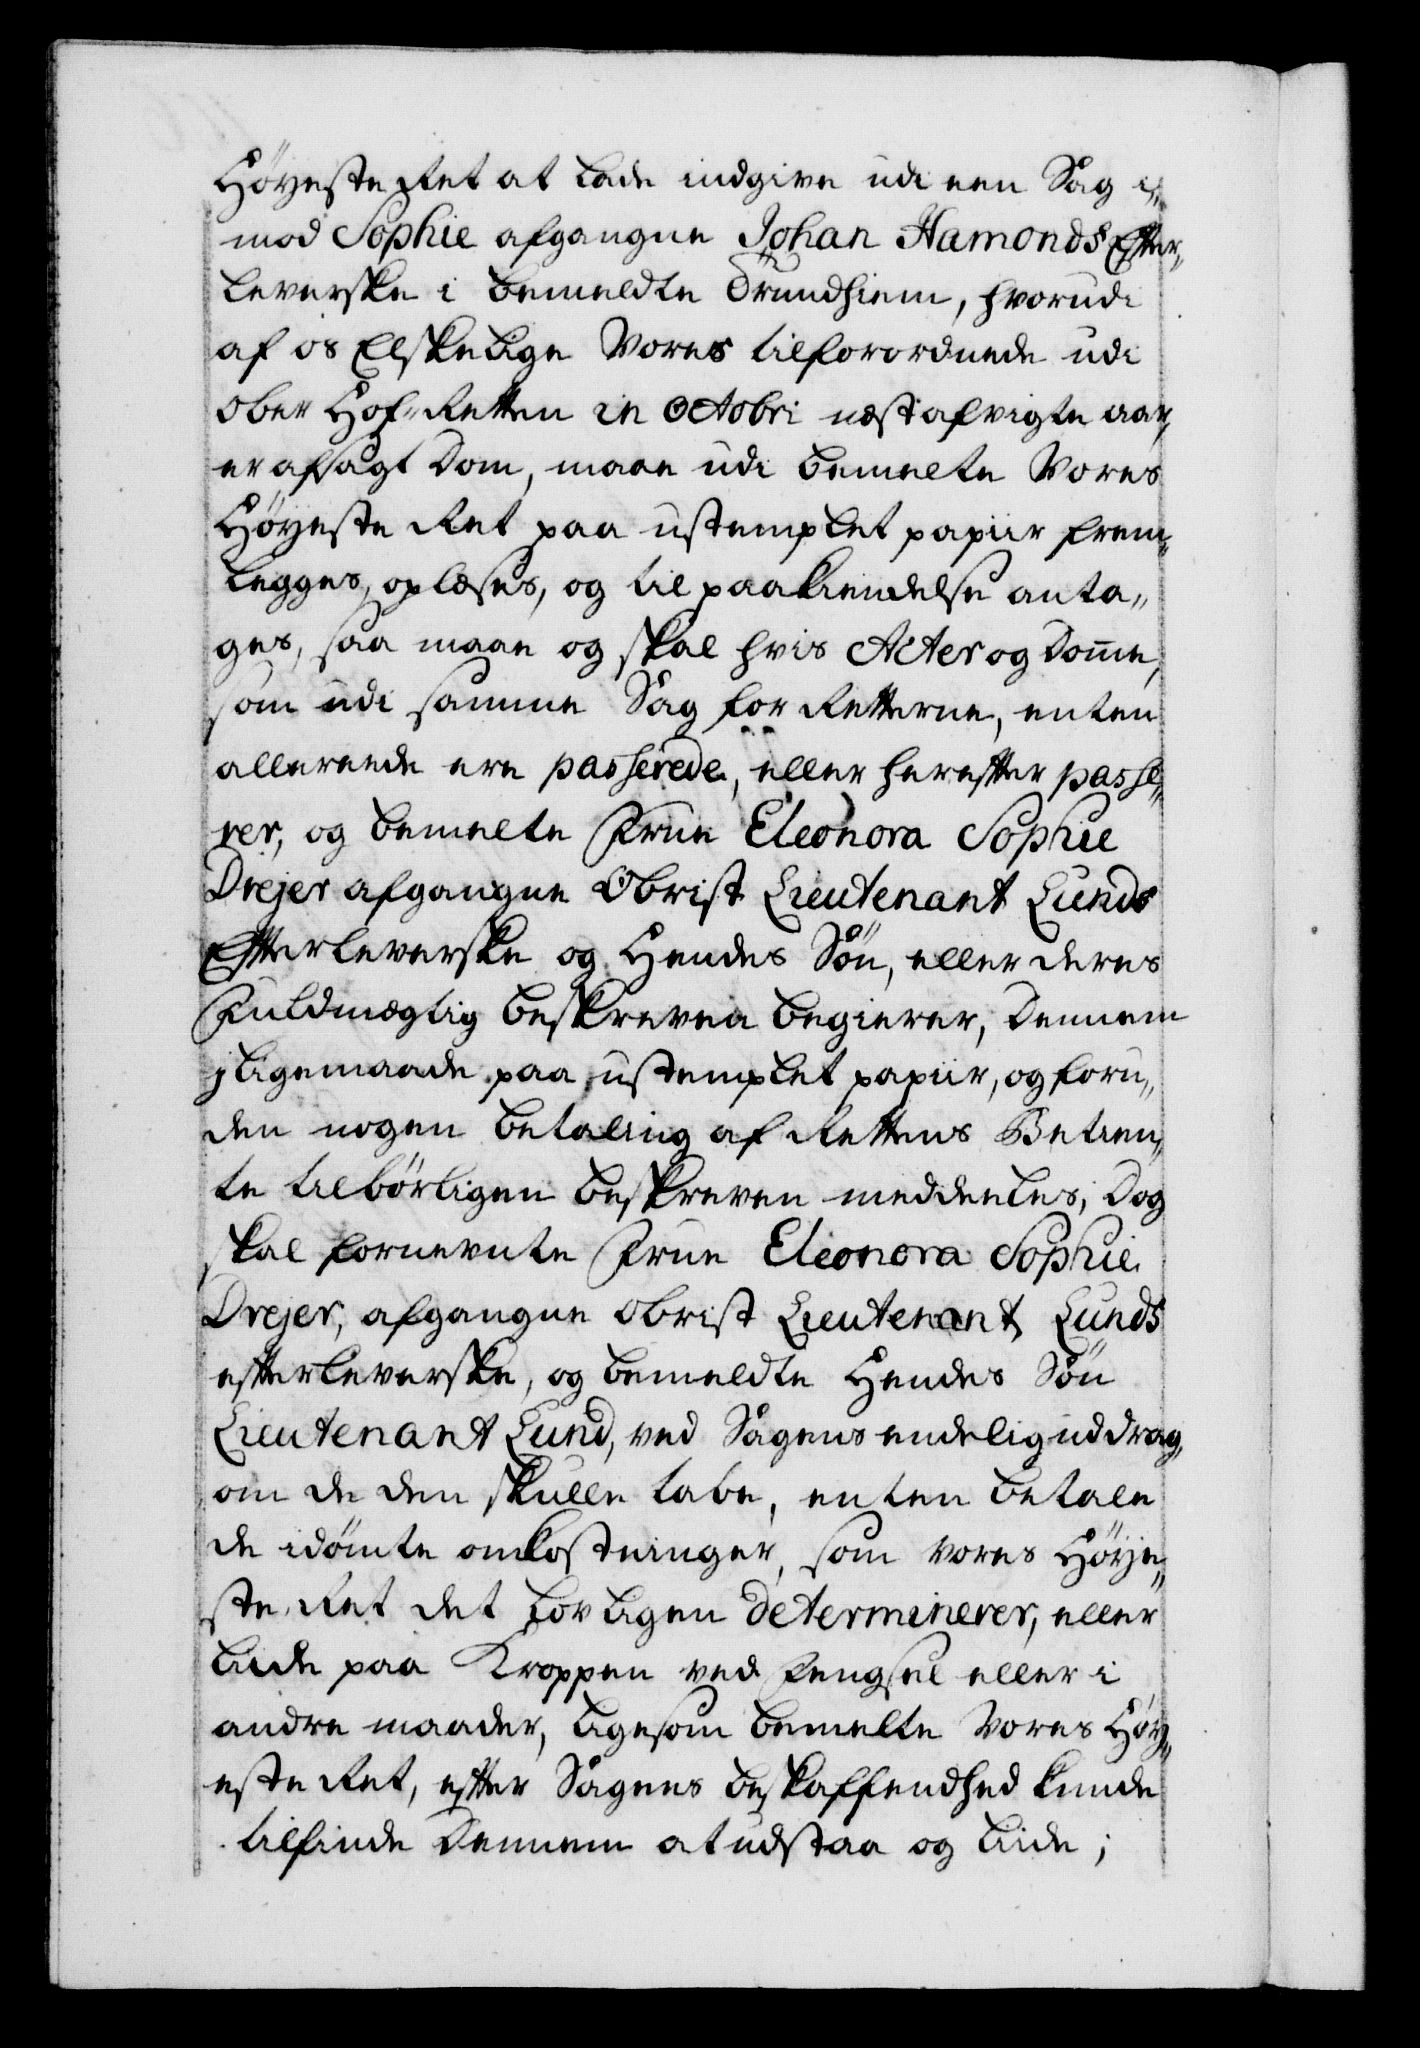 Høyeste Ret at lade indgive udi een Sag i„
mod Sophie afgangne Johan Hamonds Efter„
leverske i bemeldte Trundhiem, hvorudi
af os Elskelige Vores tilforordnede udi
Ober Hof-Retten in Octobri næstafvigte aar,
er afsagt Dom, maae udi bemelte Vores
Høyeste Ret paa ustemplet papiir frem„
legges, oplæses, og til paakiendelse anta„
ges, saa maae og skal hvis Acter og Domme,
som udi samme Sag for Retterne, enten
allereede ere passerede, eller herefter passe„
rer, og bemelte Frue Eleonora Sophie
Drejer afgangne Obrist Lieutenant Lunds
Efterleverske og Hendes Søn, eller deres
Fuldmægtig beskreven begierer, Dennem
j ligemaade paa ustemplet papiir, og foru„
den nogen betaling af Rettens Betien„
te tilbørligen beskreven meddeeles; Dog
skal fornevnte Frue Eleonora Sophie
Drejer, afgangne Obrist Lieutenant Lunds
efterleverske, og bemeldte Hendes Søn
Lieutenant Lund, ved Sagens endelig uddrag,
om de den skulle tabe, enten betale
de idømte omkostninger, som vores Høye„
ste Ret det lovligen determinerer, eller
liide paa Kroppen ved fengsel eller i
andre maader, ligesom bemelte Vores Høy„
este Ret, efter Sagens beskaffendhed kunde
tilfinde Dennem at udstaa og liide;